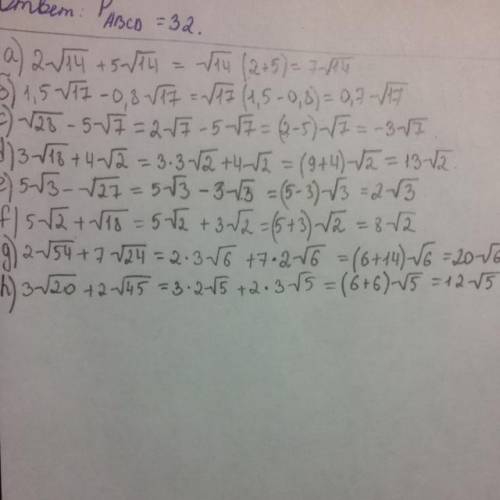 Ответ: P_ABCD = 32.
a) 2√14 + 5√14 = √14 (2+5) = 7√14
b) 1,5√17 - 0,8√17 = √17 (1,5 - 0,8) = 0,7√17
c) √28 - 5√7 = 2√7 - 5√7 = (2-5)√7 = -3√7
d) 3√18 + 4√2 = 3·3√2 + 4√2 = (9+4)√2 = 13√2.
e) 5√3 - √27 = 5√3 - 3√3 = (5-3)√3 = 2√3
f) 5√2 + √18 = 5√2 + 3√2 = (5+3)√2 = 8√2
g) 2√54 + 7√24 = 2·3√6 + 7·2√6 = (6+14)√6 = 20√6
h) 3√20 + 2√45 = 3·2√5 + 2·3√5 = (6+6)√5 = 12√5